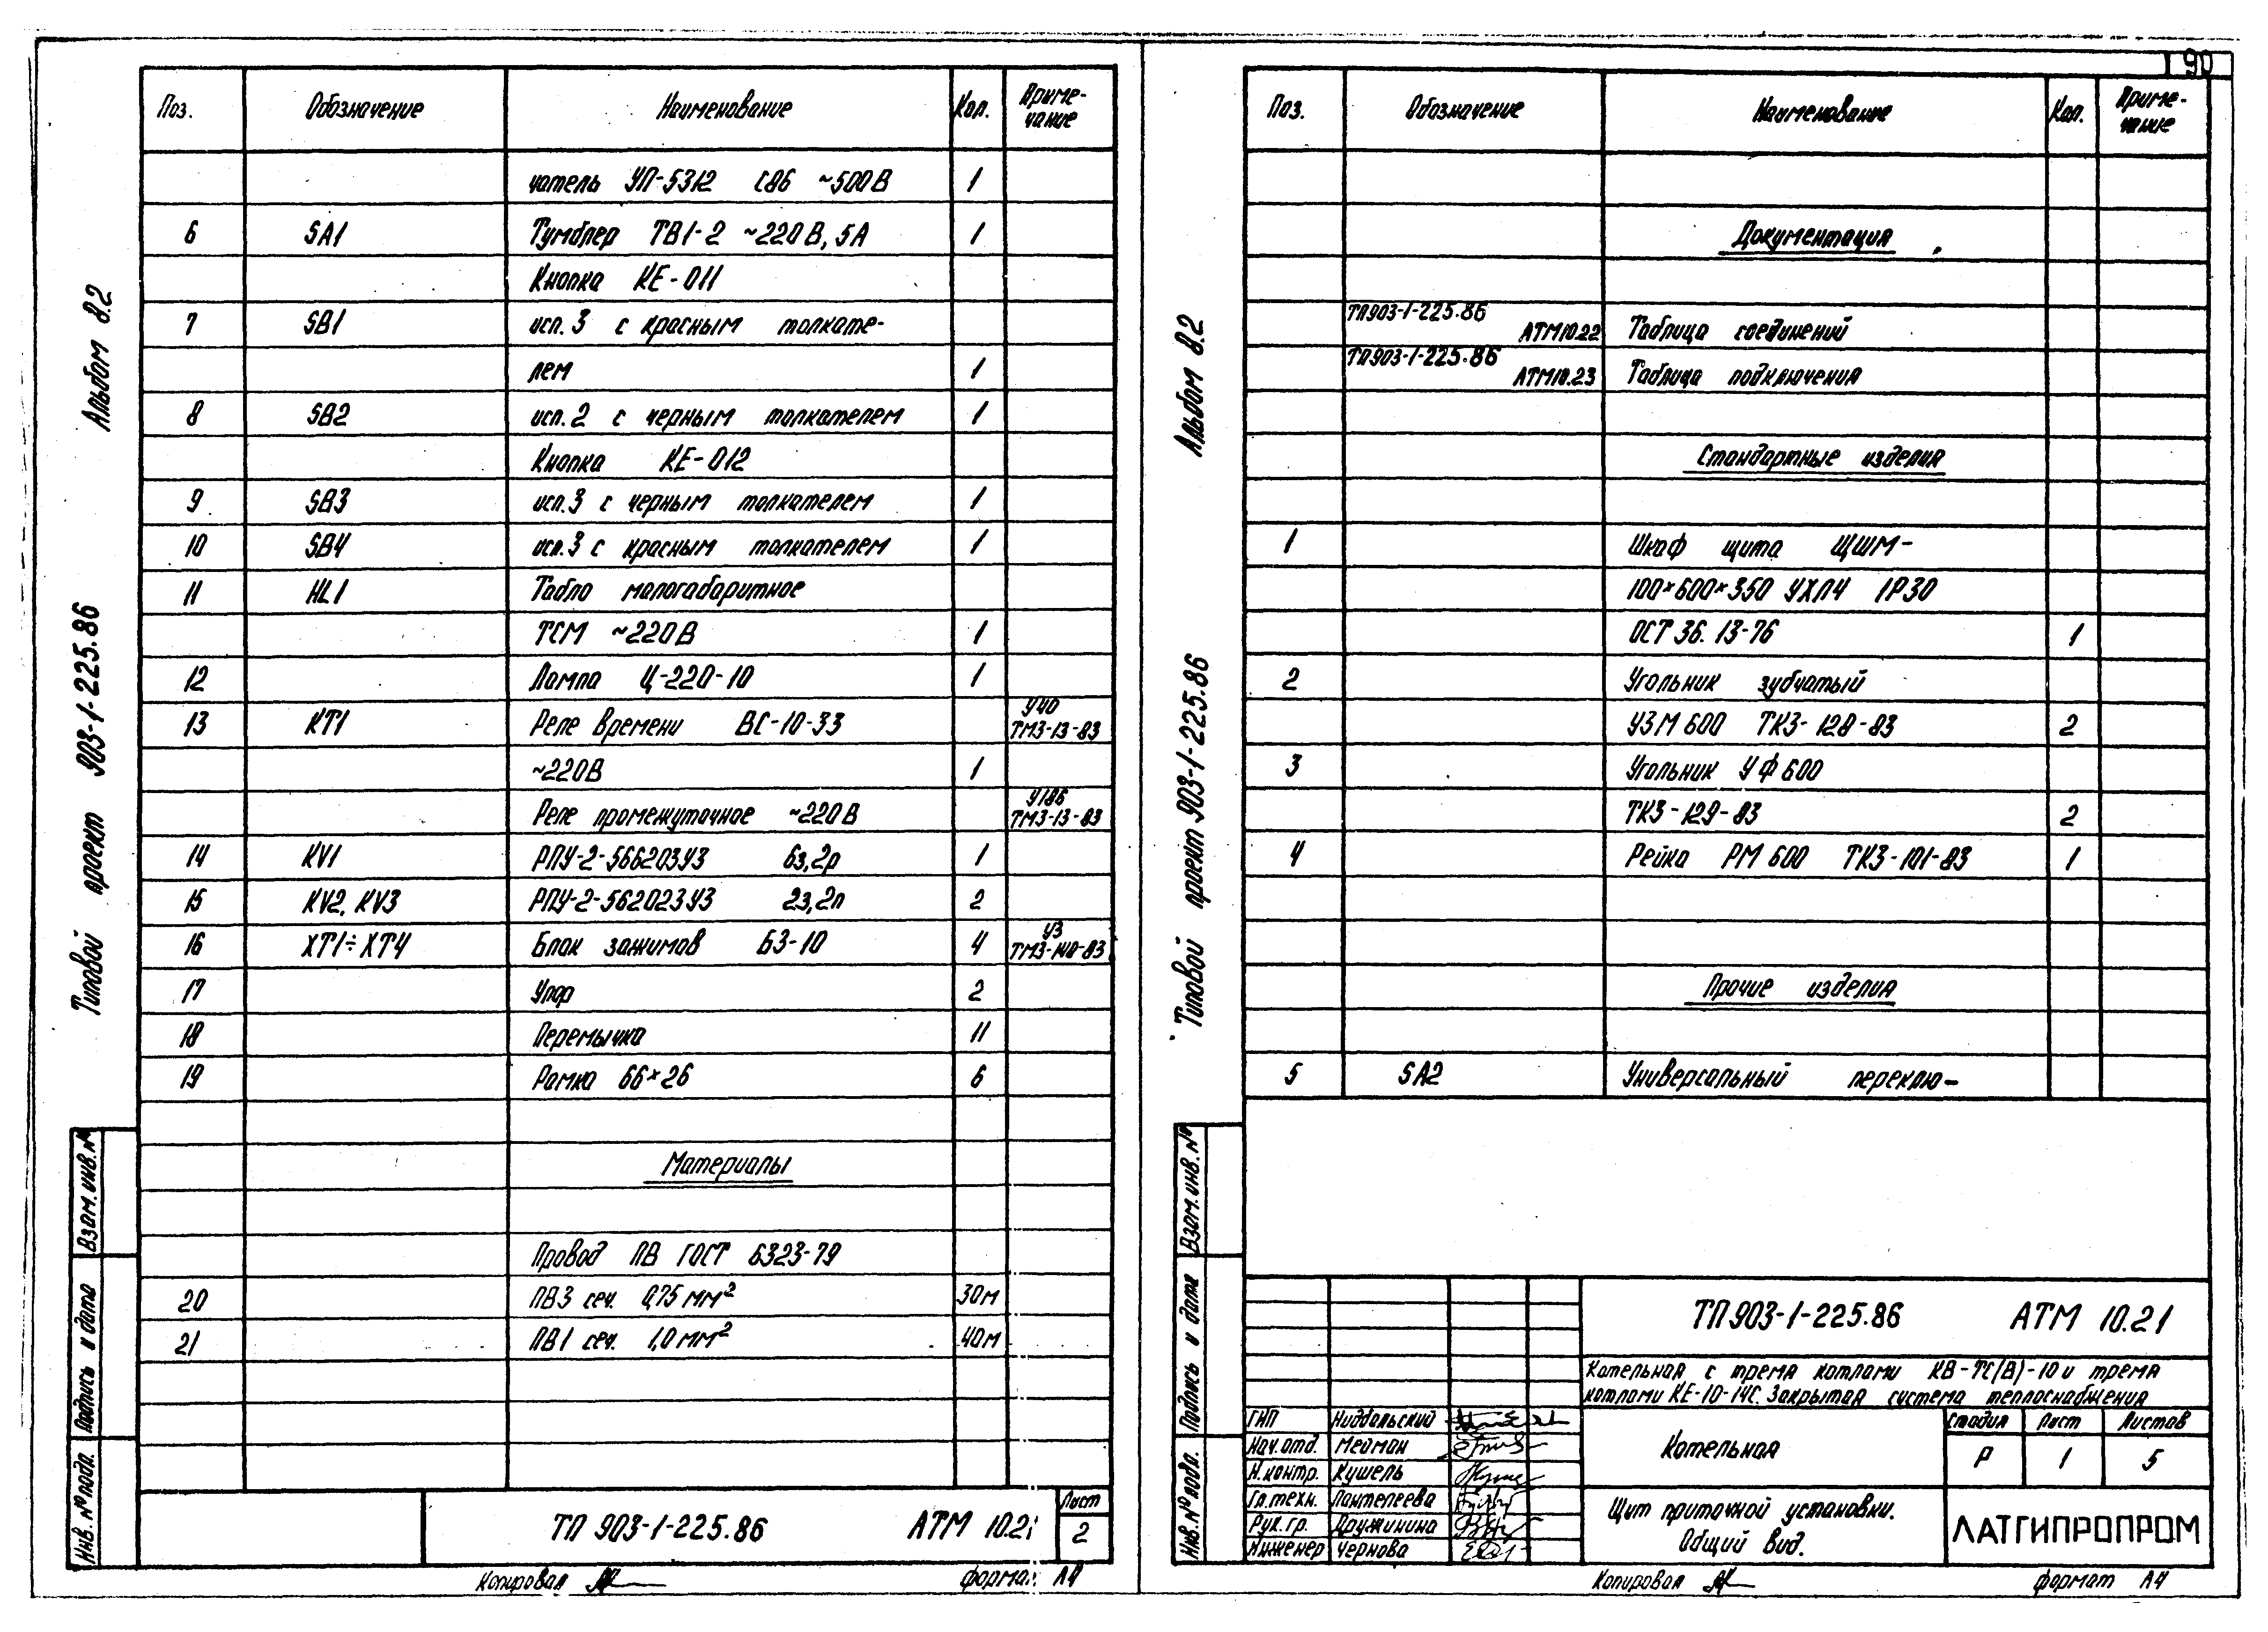 Альбом 8.2
Типовой проект 903-1-225.86
Поз. Обозначение Наименование Кол. Приме-
чание
чатель УП-5312 С86 ~500В 1
6 SA1 Тумблер ТВ1-2 ~220В, 5А 1
Кнопка КЕ-011
7 SB1 исп. 3 с красным толкате-
лем 1
8 SB2 исп. 2 с черным толкателем 1
Кнопка КЕ-012
9 SB3 исп. 3 с черным толкателем 1
10 SB4 исп. 3 с красным толкателем 1
11 HL1 Табло малогабаритное
ТСМ ~220В 1
12 Лампа Ц-220-10 1
13 КТ1 Реле времени ВС-10-33 У40
ТМ3-13-83
~220В 1
Реле промежуточное ~220В У186
ТМ3-13-83
14 KV1 РПУ-2-566203У3 6з,2р 1
15 KV2, KV3 РПУ-2-562023У3 2з,2п 2
16 XT1÷XT4 Блок зажимов БЗ-10 4 У3
ТМ3-148-83
17 Упор 2
18 Перемычка 11
19 Рамка 66×26 6
Материалы
Провод ПВ ГОСТ 6323-79
20 ПВ3 сеч. 0,75 мм² 30м
21 ПВ1 сеч. 1,0 мм² 40м
Взам. инв. №
Подпись и дата
Инв. № подл.
ТП 903-1-225.86 АТМ 10.21
Лист
2
Копировал
формат А4
90
Альбом 8.2
Типовой проект 903-1-225.86
Поз. Обозначение Наименование Кол. Приме-
чание
Документация
ТП903-1-225.86
АТМ10.22 Таблица соединений
ТП903-1-225.86
АТМ10.23 Таблица подключения
Стандартные изделия
1 Шкаф щита ЩШМ-
100×600×350 УХЛ4 IP30
ОСТ 36.13-76 1
2 Угольник зубчатый
УЗМ 600 ТК3-128-83 2
3 Угольник УФ 600
ТК3-129-83 2
4 Рейка РМ 600 ТК3-101-83 1
Прочие изделия
5 SA2 Универсальный переклю-
Взам. инв. №
Подпись и дата
Инв. № подл.
ТП 903-1-225.86 АТМ 10.21
Котельная с тремя котлами КВ-ТС(В)-10 и тремя
котлами КЕ-10-14С. Закрытая система теплоснабжения
ГИП Нидбальский
Нач. отд. Мейман
Н. контр. Кушель
Гл. техн. Пантелеева
Рук. гр. Дружинина
Инженер Чернова
Котельная
Стадия Лист Листов
Р 1 5
Щит приточной установки.
Общий вид.
ЛАТГИПРОПРОМ
Копировал
формат А4